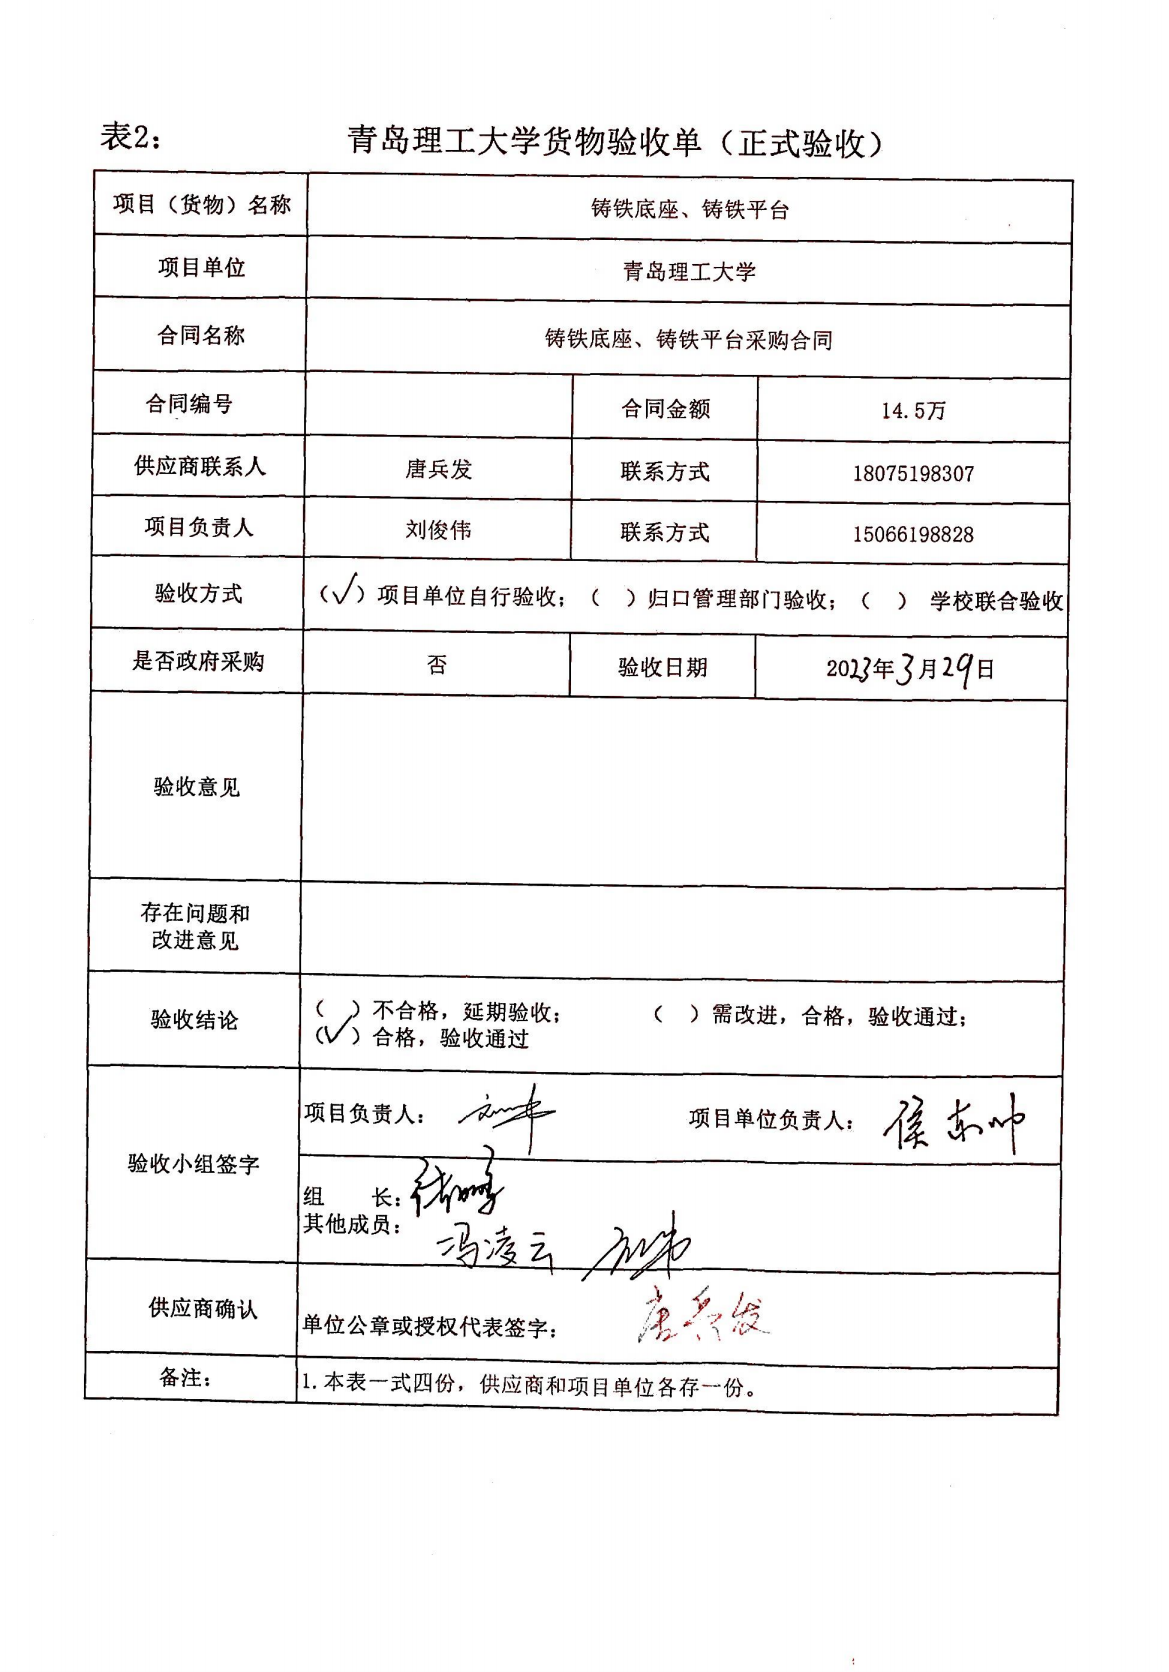 表2：
青岛理工大学货物验收单（正式验收）
项目（货物）名称 铸铁底座、铸铁平台
项目单位 青岛理工大学
合同名称 铸铁底座、铸铁平台采购合同
合同编号 合同金额 14.5万
供应商联系人 唐兵发 联系方式 18075198307
项目负责人 刘俊伟 联系方式 15066198828
验收方式 （√）项目单位自行验收；（ ）归口管理部门验收；（ ） 学校联合验收
是否政府采购 否 验收日期 2023年3月29日
验收意见
存在问题和
改进意见
验收结论
（ ）不合格，延期验收； （ ）需改进，合格，验收通过；
（√）合格，验收通过
验收小组签字
项目负责人： 项目单位负责人：侯东帅
组 长：
其他成员：
冯凌云
供应商确认
单位公章或授权代表签字：唐兵发
备注： 1.本表一式四份，供应商和项目单位各存一份。